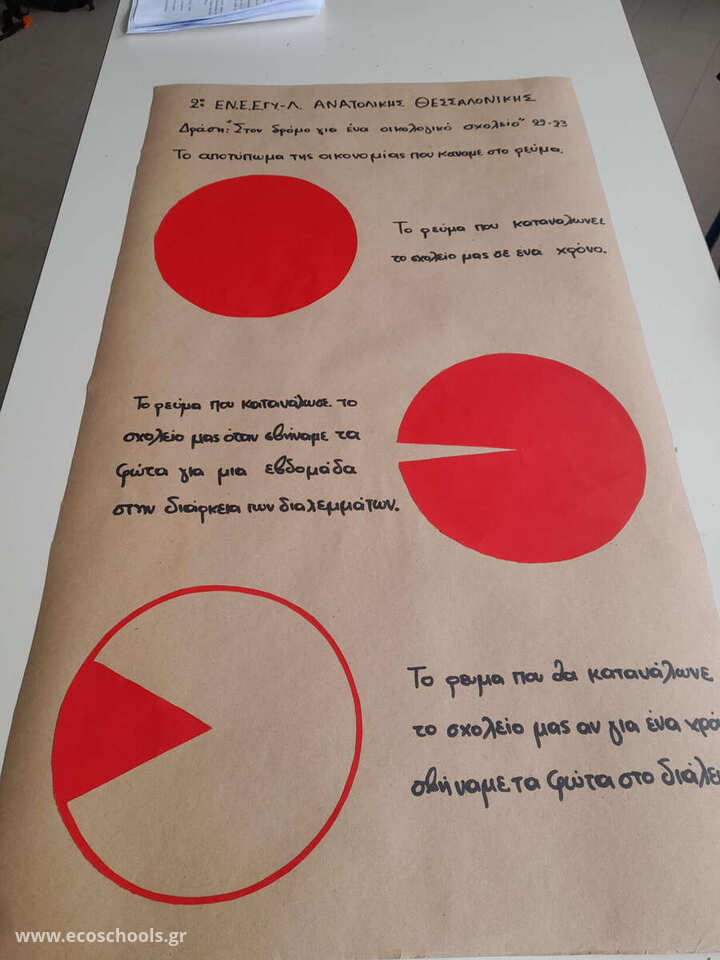 2ο ΕΝ.Ε.ΕΓΥ-Λ. ΑΝΑΤΟΛΙΚΗΣ ΘΕΣΣΑΛΟΝΙΚΗΣ
Δράση: "Στον δρόμο για ένα οικολογικό σχολείο" 22-23
Το αποτύπωμα της οικονομίας που κάναμε στο ρεύμα.
Το ρεύμα που καταναλώνει
το σχολείο μας σε ένα χρόνο.
Το ρεύμα που κατανάλωσε το
σχολείο μας όταν σβήναμε τα
φώτα για μια εβδομάδα
στην διάρκεια των διαλεμμάτων.
Το ρευμα που θα κατανάλωνε
το σχολείο μας αν για ένα χρό
σβήναμε τα φώτα στο διάλε
www.ecoschools.gr